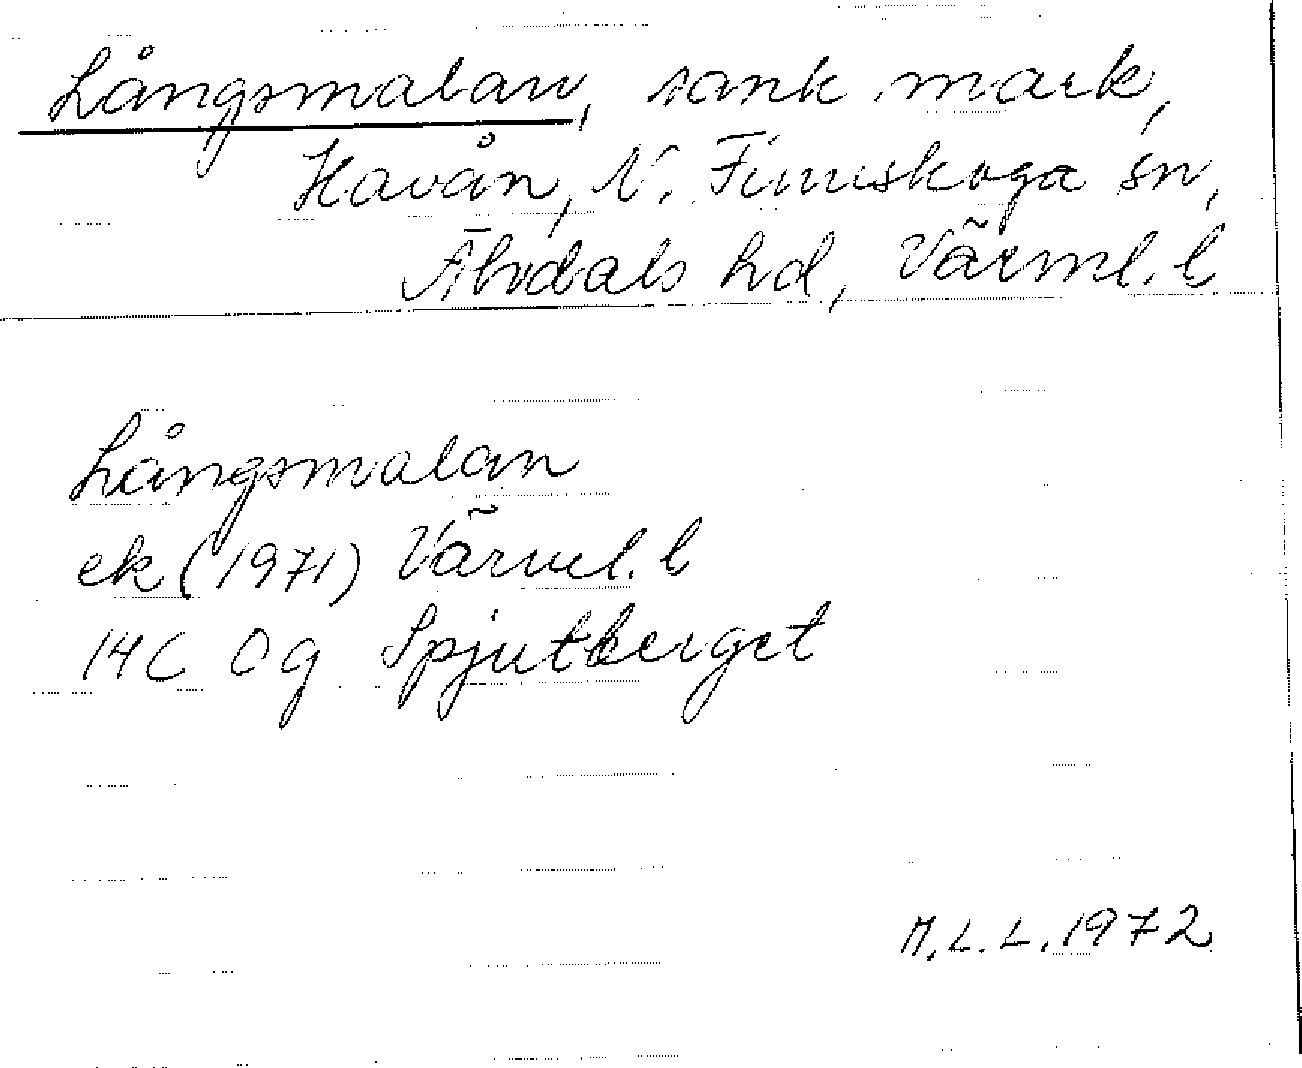 Långsmalan, sank mark,
Havån, N. Finnskoga sn,
Älvdals hd, Värml. l
Långsmalan
ek (1971) Värml. l
14C 0g Spjutberget
M.L.L. 1972